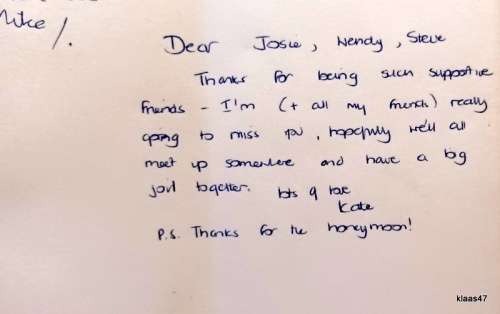 Mike /.
Dear Josie, Wendy, Steve
Thanks for being such supportive
friends - I'm (+ all my friends) really
going to miss you, hopefully we'll all
meet up somewhere and have a big
together. lots of love
Kate
P.S. Thanks for the honeymoon!
klaas47